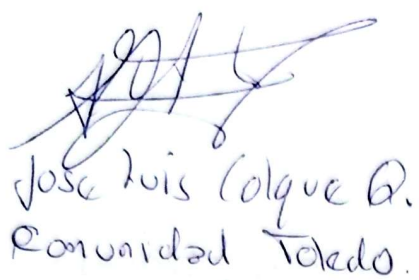 Jose Luis Colque Q.
Comunidad Toledo.